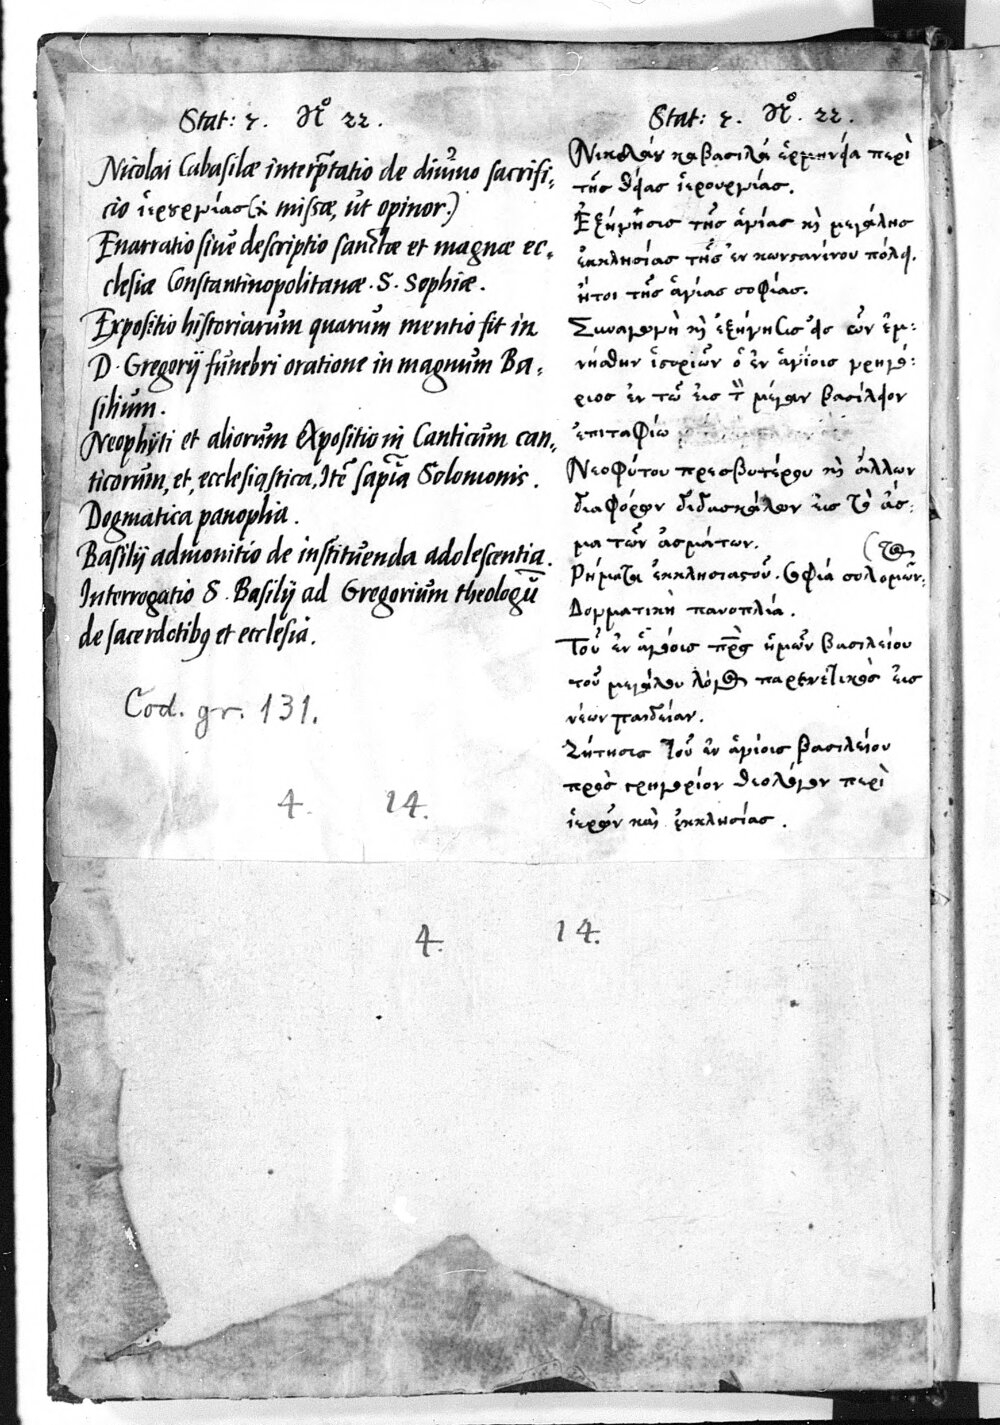 Stat: 7. No 22.
Nicolai Cabasilæ interp̃tatio de diuino sacrifi,
cio ἱερουργίας (i. missæ, ut opinor.)
Enarratio siue descriptio sanctæ et magnæ ec,
clesiæ Constantinopolitanæ. S. Sophiæ.
Expositio historiarum quarum mentio fit in
D. Gregorij funebri oratione in magnum Ba,
silium.
Neophyti et aliorum expositio in Canticum can,
ticorum, et, ecclesiastica, Itē sapīa Solomonis.
Dogmatica panoplia.
Basilij admonitio de instituenda adolescentia.
Interrogatio S. Basilij ad Gregorium theologū
de sacerdotibꝯ et ecclesia.
Cod. gr. 131.
4. 14.
Stat: 7. No. 22.
Νικολάου καβασιλά ἑρμηνεία περὶ
τῆς θείας ἱερουργίας.
Ἐξήγησις τῆς ἁγίας κὶ μεγάλης
ἐκκλησίας τῆς ἐν κωνσταντίνου πόλει.
ἤτοι τῆς ἁγίας σοφίας.
Συναγωγὴ κὶ ἐξήγησις ὧν ἐμ:
νήσθην ἱστοριῶν ὁ ἐν ἁγίοις γρηγό:
ριος ἐν τῶ εἰς τὸν μέγαν βασίλειον
ἐπιταφίω
Νεοφύτου πρεσβυτέρου κὶ ἄλλων
διαφόρων διδασκάλων εἰς τὸ ἆσ:
μα τῶν ἀσμάτων.
Ρήματα ἐκκλησιαστοῦ. σοφία σολομῶν:
(τος
Δογματικὴ πανοπλία.
Τοῦ ἐν ἁγίοις πρ̅ς ἡμῶν βασιλείου
τοῦ μεγάλου λόγος παρενετικὸς εἰς
νέων παιδείαν.
Ζήτησις τοῦ ἐν ἁγίοις βασιλείου
πρὸς γρηγορίον θεολόγον περὶ
ἱερῶν καὶ ἐκκλησίας.
4. 14.